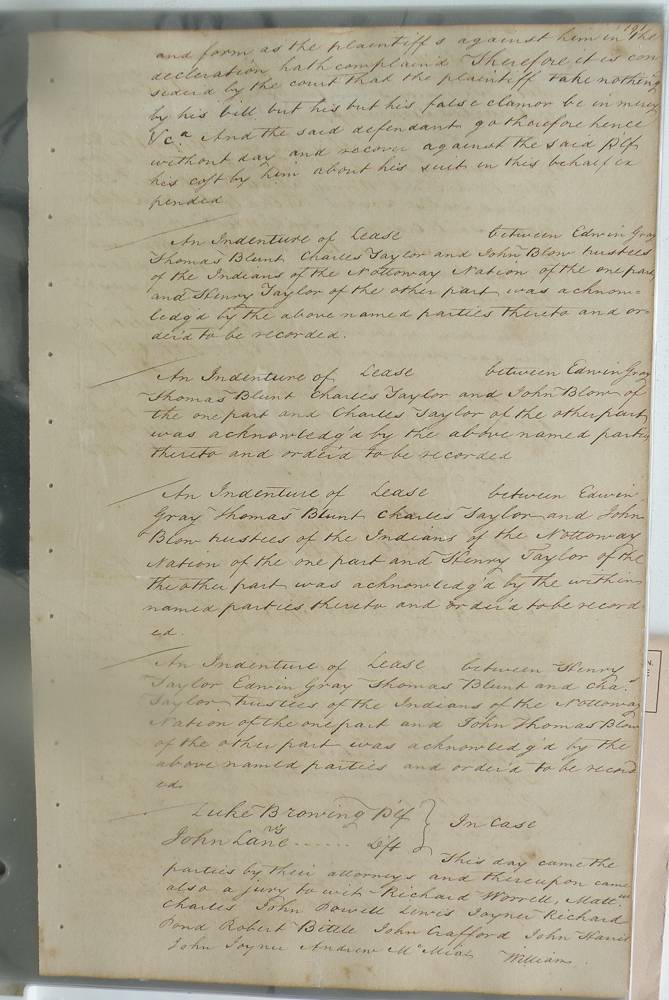 and form as the plaintiff s against him in the
decleration hath complain'd Therefore it is con
siderd by the court that the plaintiff take nothing
by his bill but his but his false clamor be in mercy
&c.a And the said defendant go therefore hence
without day and recover against the said Plf
his cost by him about his suit in this behalf ex
pended
An Indenture of Lease between Edwin Gray
Thomas Blunt Charles Taylor and John Blow trustees
of the Indians of the Nottoway Nation of the one part
and Henry Taylor of the other part was acknow=
ledg'd by the above named parties thereto and or=
der'd to be recorded.
An Indenture of Lease between Edwin Gray
Thomas Blunt Charles Taylor and John Blow of
the one part and Charles Taylor of the other part
was acknowledg'd by the above named parties
thereto and order'd to be recorded
An Indenture of Lease between Edwin
Gray Thomas Blunt Charles Taylor and John
Blow trustees of the Indians of the Nottoway
Nation of the one part and Henry Taylor of the
the other part was acknowledg'd by the within
named parties thereto and order'd to be record
ed.
An Indenture of Lease between Henry
Taylor Edwin Gray Thomas Blunt and Chas.
Taylor trustees of the Indians of the Nottoway
Nation of the one part and John Thomas Blow
of the other part was acknowledg'd by the
above named parties and order'd to be record
ed.
Luke Browing Plf } In Case
vs
John Lane ...... Dft
This day came the
parties by their attorneys and thereupon came
also a jury to wit Richard Worrell, Matt.w
Charles John Powell Lewis Joyner Richard
Pond Robert Bittle John Crafford John Harris
John Joyner Andrew McMial William